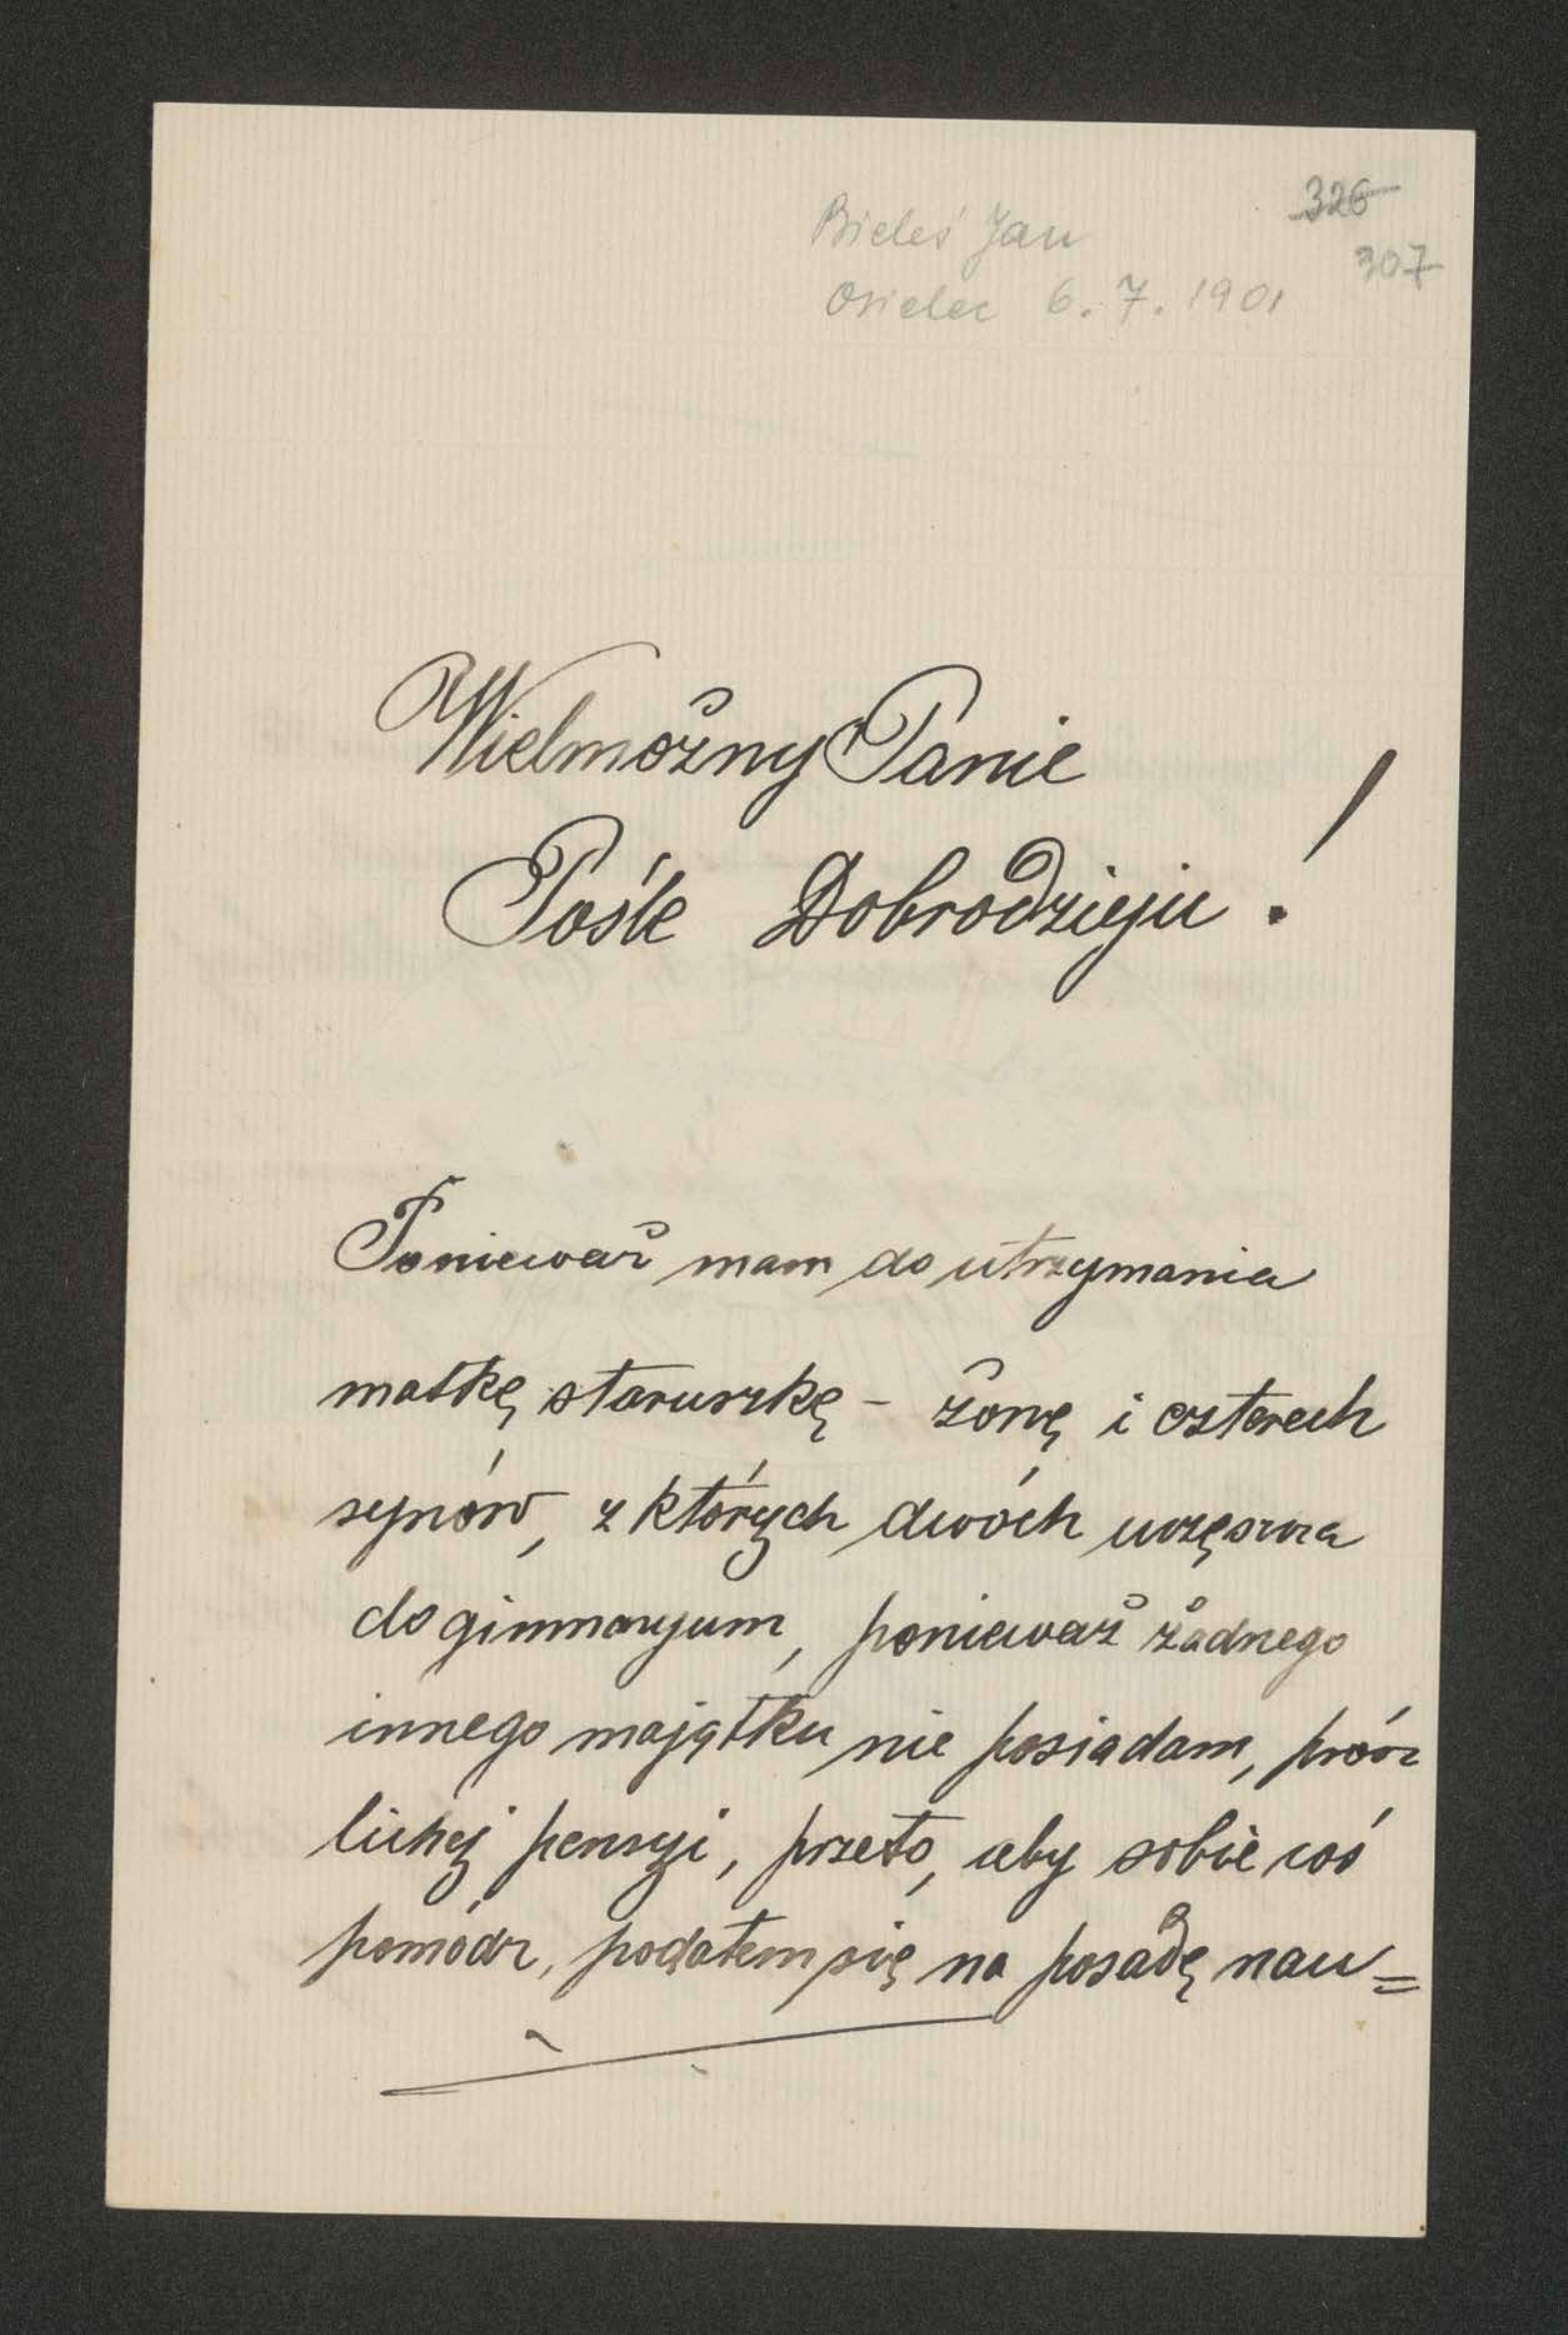 326
Bieleś Jan
307
Osielec 6. 7. 1901
Wielmożny Panie
Pośle Dobrodzieju !
Ponieważ mam do utrzymania
matkę staruszkę – żonę i czterech
synów, z których dwóch uczęszcza
do gimnazyum, ponieważ żadnego
innego majątku nie posiadam, prócz
lichej pensyi, przeto, aby sobie coś
pomódz, podałem się na posadę nau=